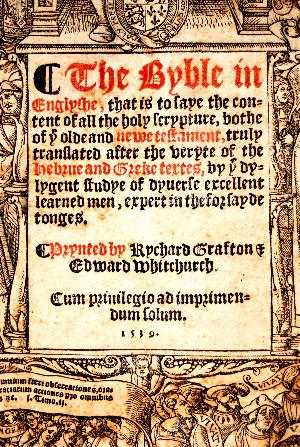 ¶ The Byble in
Englyshe, that is to saye the con-
tent of all the holy scrypture, bothe
of yͤ olde and newe testament, truly
translated after the veryte of the
Hebrue and Greke textes, by yͤ dy-
lygent studye of dyuerse excellent
learned men, expert in the forsayde
tonges.
¶ Prynted by Rychard Grafton &
Edward Whitchurch.
Cum priuilegio ad imprimen-
dum solum.
1539.
omnibus
I. Timo. ii.
VIVAT